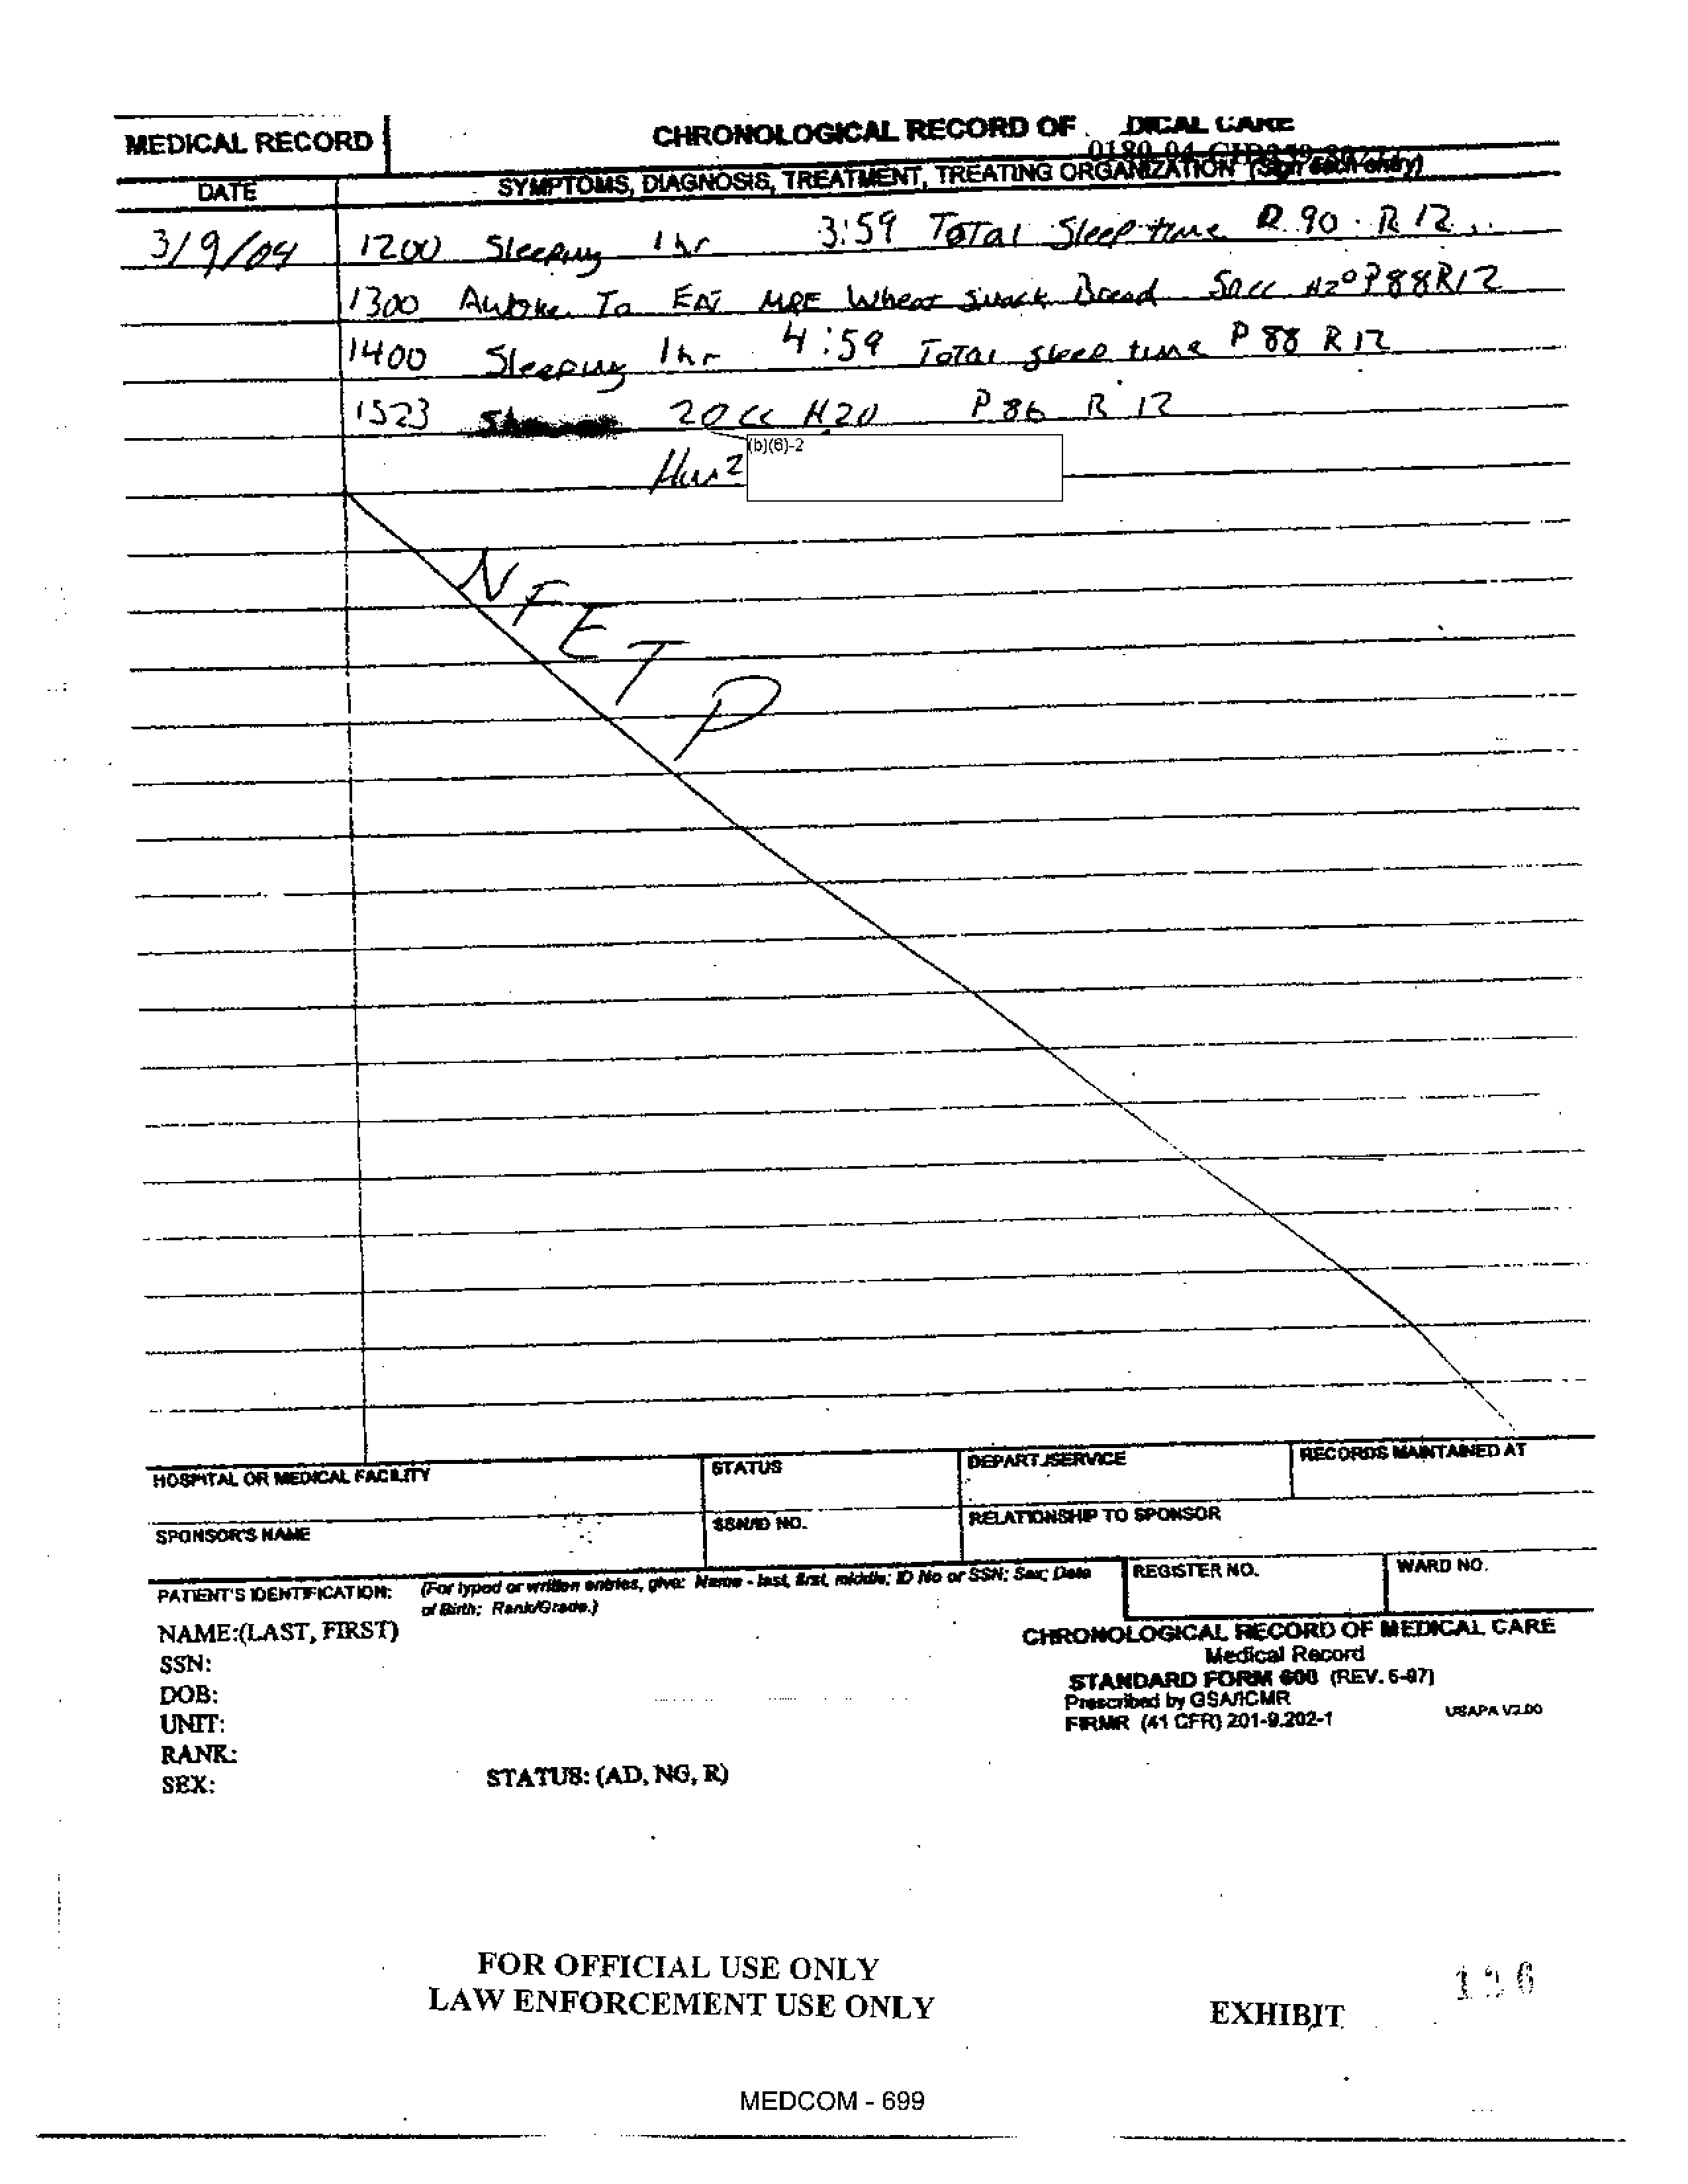 MEDICAL RECORD
CHRONOLOGICAL RECORD OF DICAL CARE
0180 04
DATE
SYMPTOMS, DIAGNOSIS, TREATMENT, TREATING ORGANIZATION (Sign each entry)
3/9/04 1200 Sleeping 1hr 3:59 Total Sleep time P 90 R 12
1300 Awoke To EAT MRE Wheat Snack Bread 50cc H20 P88R12
1400 Sleeping 1hr 4:59 Total sleep time P 88 R 12
1523 20cc H20 P 86 R 12
(b)(6)-2
NFETP
HOSPITAL OR MEDICAL FACILITY
STATUS
DEPART./SERVICE
RECORDS MAINTAINED AT
SPONSOR'S NAME
SSN/ID NO.
RELATIONSHIP TO SPONSOR
PATIENT'S IDENTIFICATION: (For typed or written entries, give: Name - last, first, middle; ID No or SSN; Sex; Date
of Birth; Rank/Grade.)
REGISTER NO.
WARD NO.
NAME:(LAST, FIRST)
SSN:
DOB:
UNIT:
RANK:
SEX:
STATUS: (AD, NG, R)
CHRONOLOGICAL RECORD OF MEDICAL CARE
Medical Record
STANDARD FORM 600 (REV. 6-97)
Prescribed by GSA/ICMR
FIRMR (41 CFR) 201-9.202-1
USAPA V2.00
FOR OFFICIAL USE ONLY
LAW ENFORCEMENT USE ONLY
EXHIBIT
MEDCOM - 699